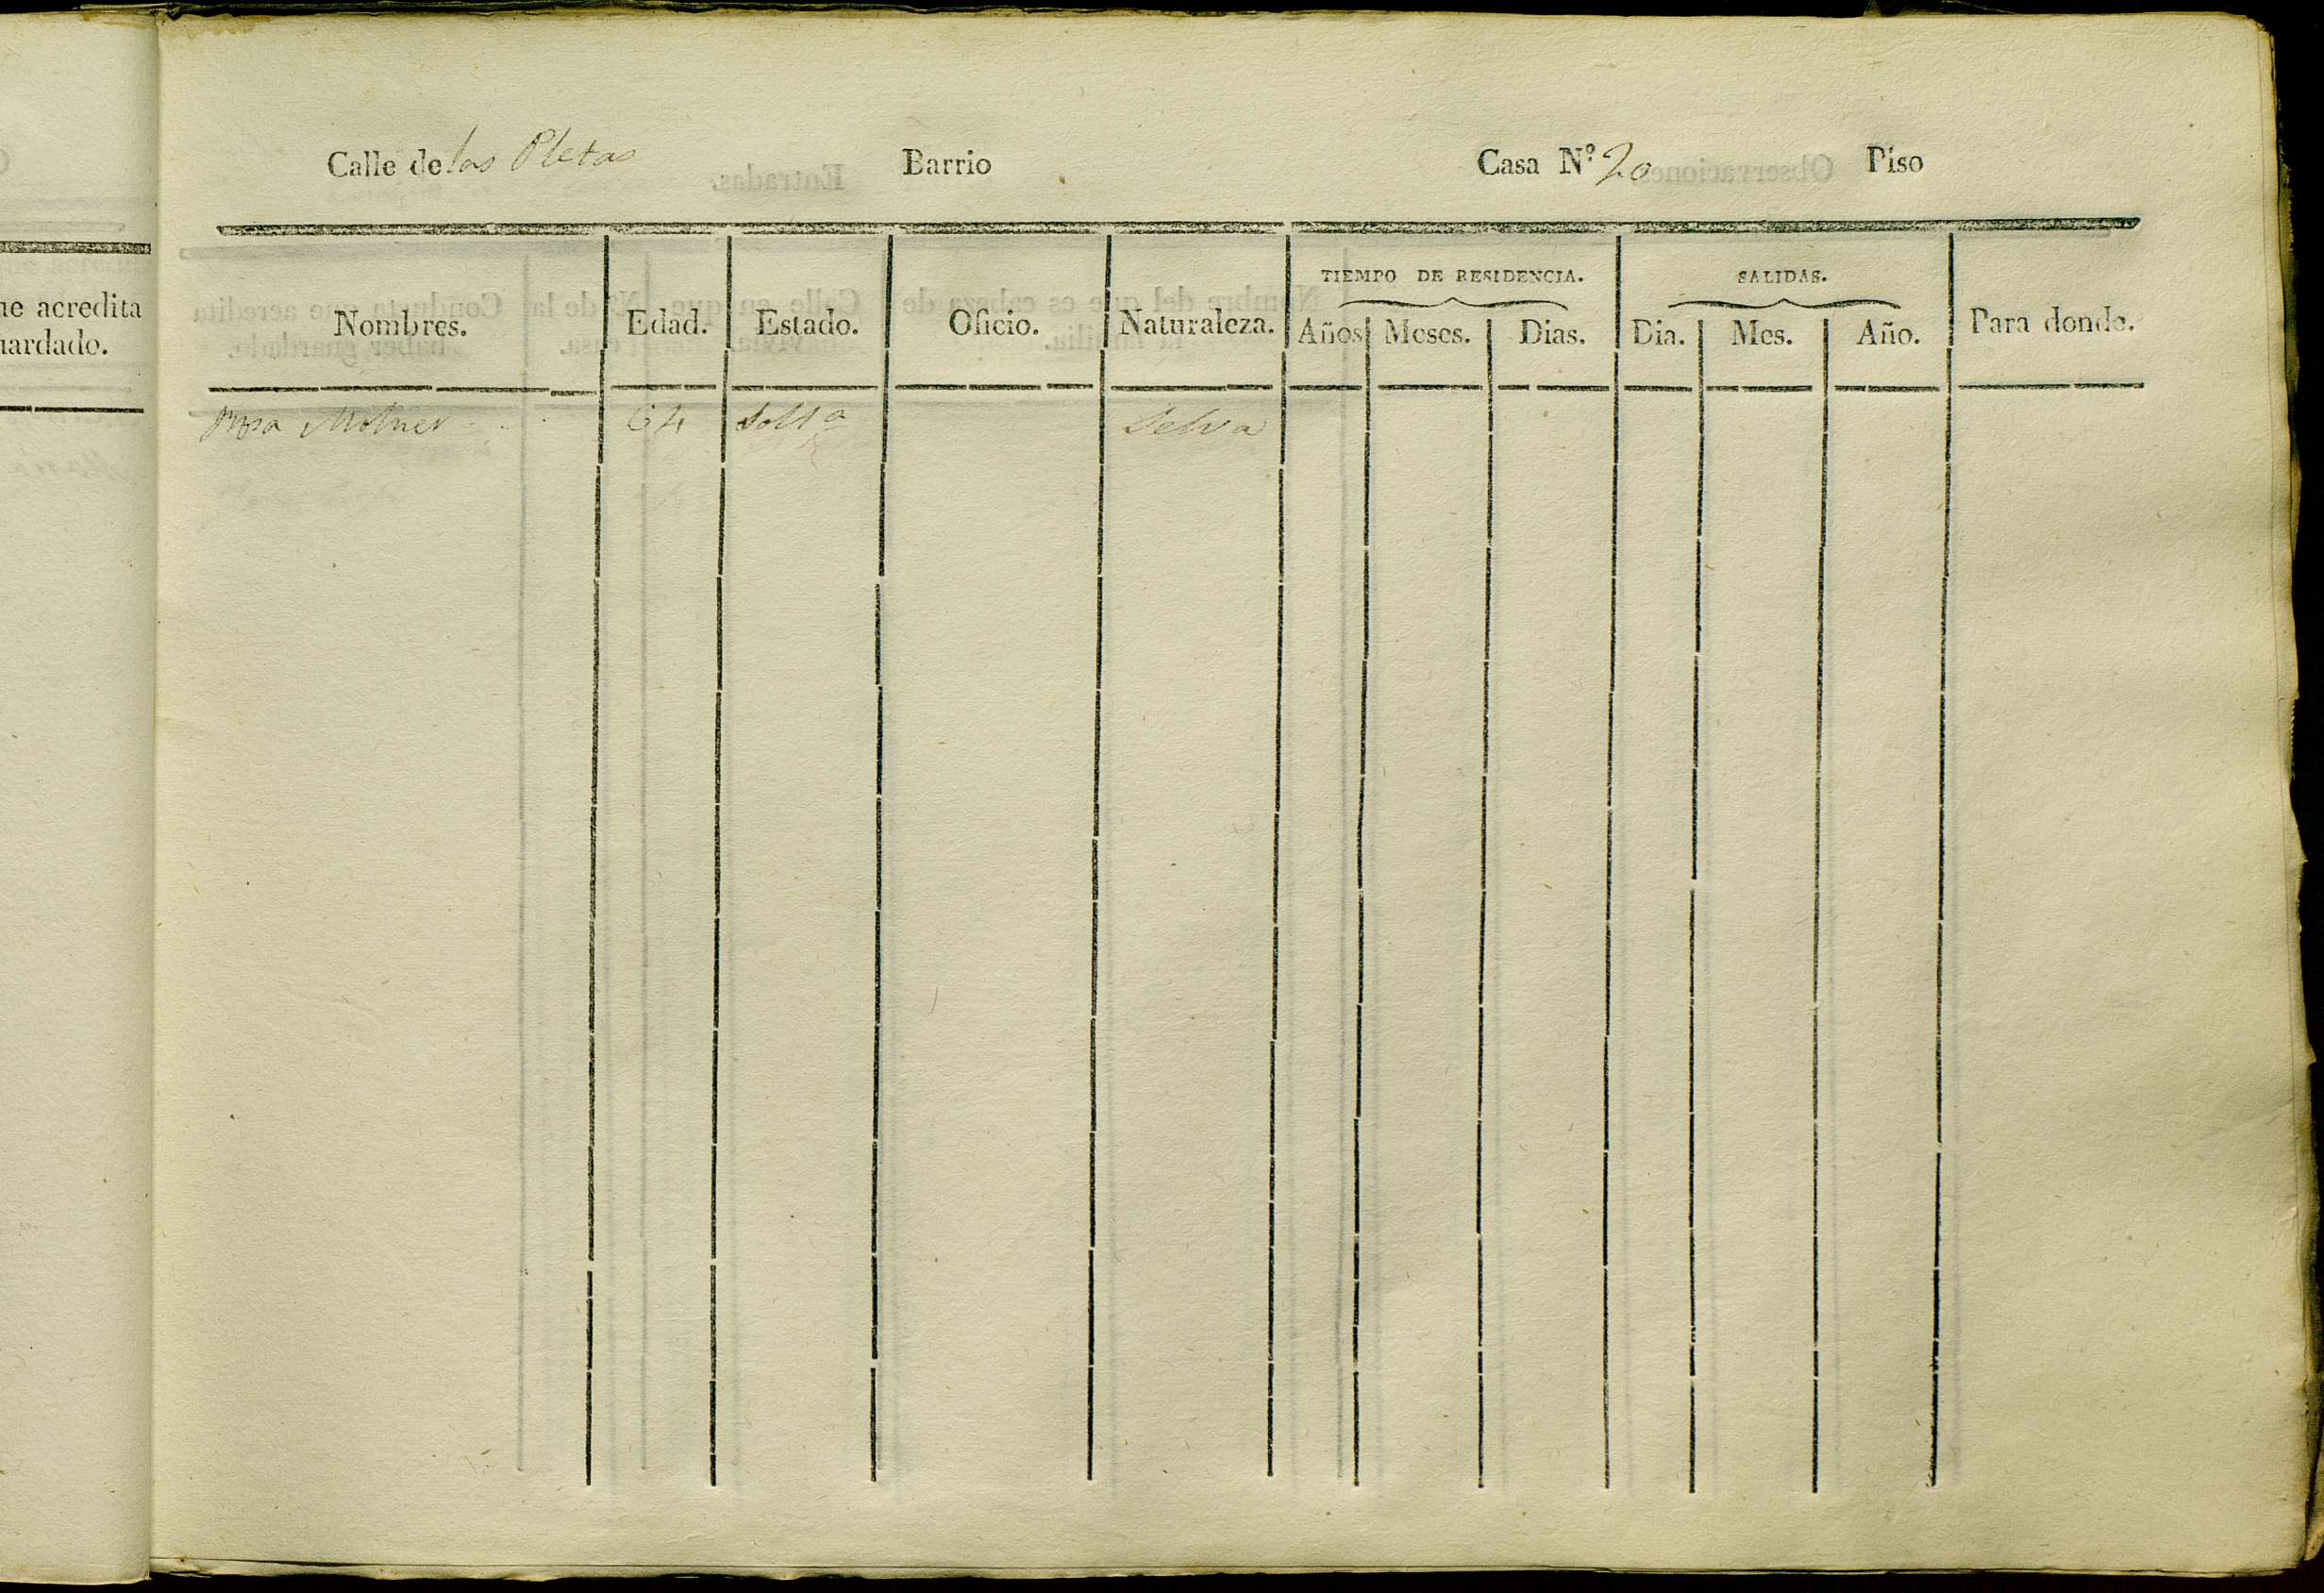 ue acredita
uardado.
Calle de las Pletas Barrio Casa N.º 20 Piso
TIEMPO DE RESIDENCIA. SALIDAS.
Nombres. Edad. Estado. Oficio. Naturaleza. Años Meses. Dias. Dia. Mes. Año. Para donde.
Rosa 64 Solt.a Selva